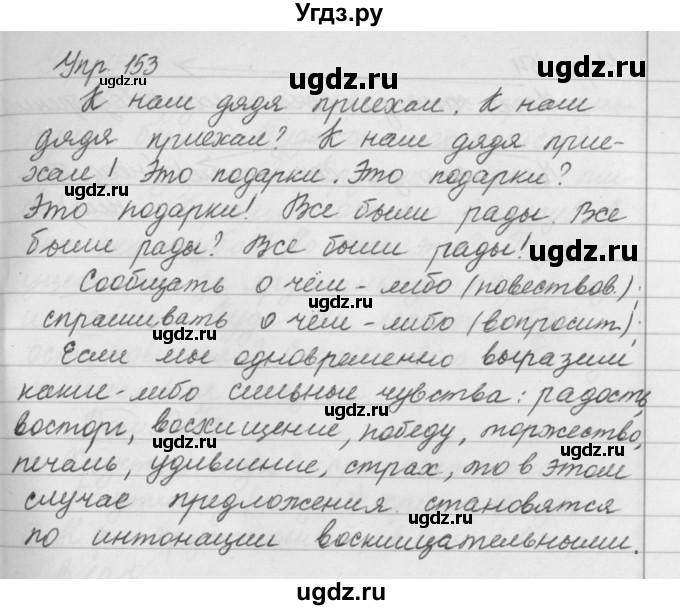 Угдз.ру
Упр. 153
К нам дядя приехал. К нам
дядя приехал? К нам дядя прие-
хал! Это подарки. Это подарки?
Это подарки! Все были рады. Все
были рады? Все были рады!
Сообщать о чём-либо (повествов.);
спрашивать о чём-либо (вопросит.);
Если мы одновременно выразим
какие-либо сильные чувства: радость,
восторг, восхищение, победу, торжество,
печаль, удивление, страх, то в этом
случае предложения становятся
по интонации восклицательными.
ugdz.ru
ugdz.ru
ugdz.ru
ugdz.ru
ugdz.ru
ugdz.ru
ugdz.ru
ugdz.ru
ugdz.ru
ugdz.ru
ugdz.ru
ugdz.ru
ugdz.ru
ugdz.ru